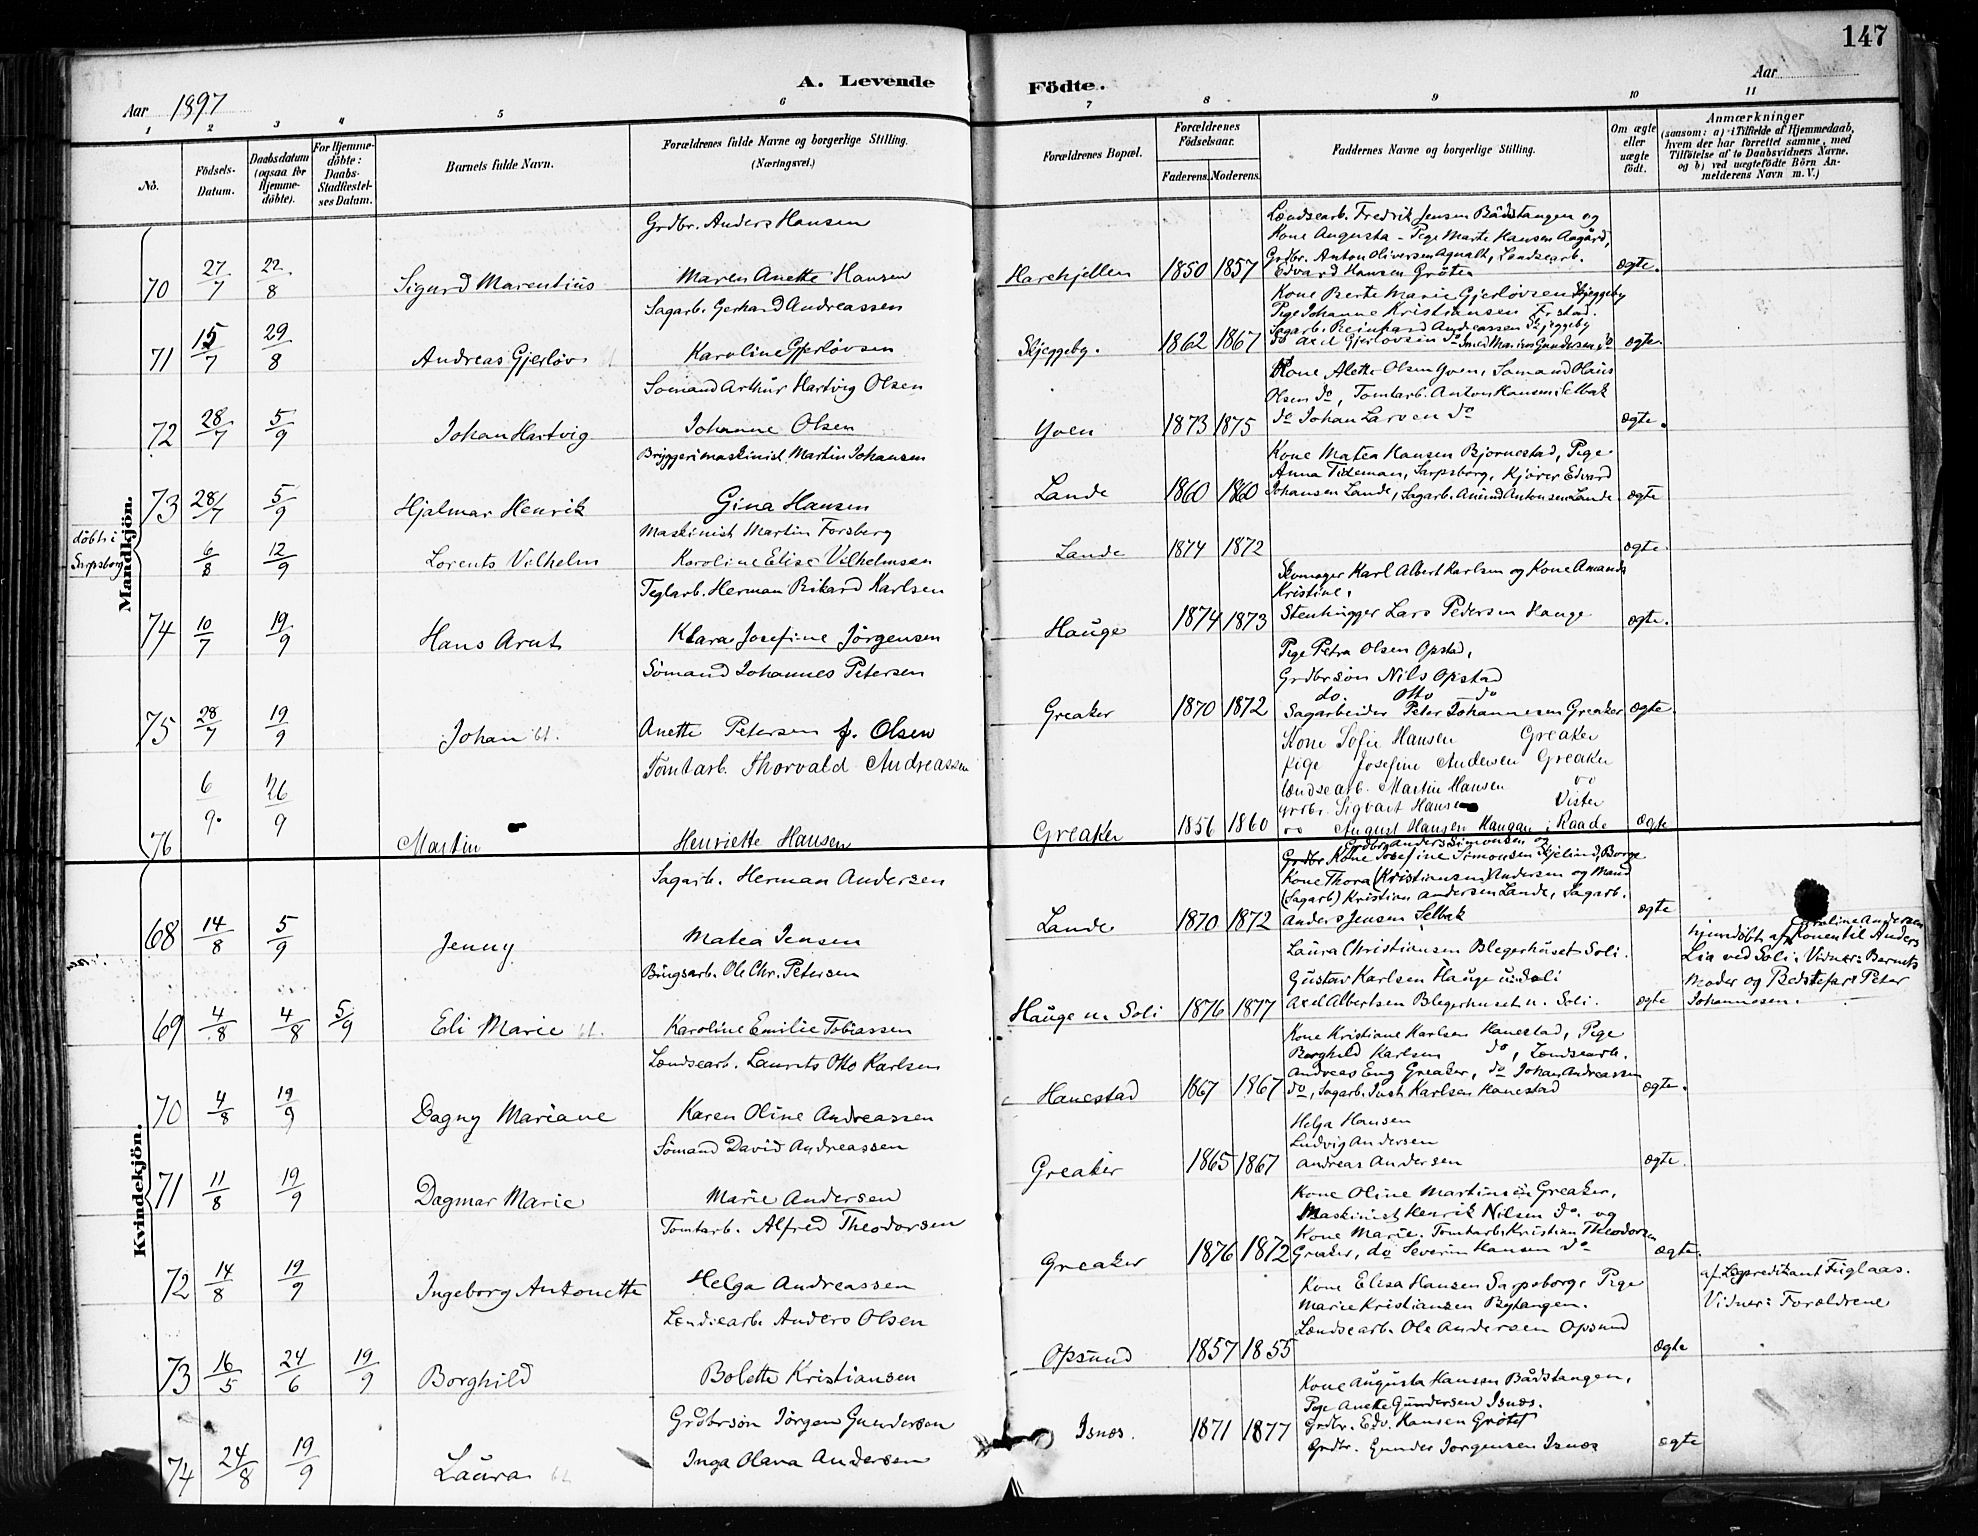 147
A. Levende Födte.
Aar 1897
Aar
1 2 3 4 5 6 7 8 9 10 11
No.
Födsels-Datum.
Daabsdatum (ogsaa for Hjemme-döbte).
For Hjemme-döbte: Daabs-Stadfæstelses Datum.
Barnets fulde Navn.
Forældrenes fulde Navne og borgerlige Stilling. (Næringsvei.)
Forældrenes Bopæl.
Forældrenes Födselsaar.
Faderens. Moderens.
Faddernes Navne og borgerlige Stilling.
Om ægte eller uægte födt.
Anmærkninger
(saasom: a) i Tilfælde af Hjemmedaab, hvem der har forrettet samme, med Tilföielse af to Daabsvidners Navne. og b) ved uægtefödte Börn Anmelderens Navn m. V.)
Mandkjön.
70 27/7 22/8 Sigurd Marentius
Grdbr. Anders Hansen
Maren Anette Hansen
Harehjellen 1850 1857
Lændsearb. Fredrik Jensen Bådstangen og
Kone Augusta - Pige Marte Hansen Aagård,
Grdbr. Anton Oliversen Agnalt, Landsearb.
Edvard Hansen Gröten
ægte.
71 15/7 29/8 Andreas Gjerløv
Sagarb. Gerhard Andreassen
Karoline Gjerløvsen
Skjeggeby. 1862 1867
Kone Berte Marie Gjerløvsen Skjeggeby
Pige Johanne Kristiansen
Sagarb. Reinhard Andreassen Skjeggeby
do Axel Gjerløvsen do Smed Marius Gundersen do
ægte.
72 28/7 5/9 Johan Hartvig
Sömand Arthur Hartvig Olsen
Johanne Olsen
Yven 1873 1875
Kone Alette Olsen Yven, Sömand Hans
Olsen do, Tomtarb. Anton Hansen Selbak
do Johan Larsen do
ægte.
73 28/7 5/9 Hjalmar Henrik
Bryggerimaskinist Martin Johansen
Gina Hansen
Lande 1860 1860
Kone Matea Hansen Bjornestad, Pige
Anna Tideman, Sarpsborg, Kjörer Edvard
Johansen Lande, Sagarb. Amund Antonsen Lande
ægte
döbt i Sarpsborg
6/8 12/9 Lorents Vilhelm
Maskinist Martin Forsberg
Karoline Elise Vilhelmsen
Lande 1874 1872
ægte.
74 10/7 19/9 Hans Arnt
Teglarb. Herman Rikard Karlsen
Klara Josefine Jörgensen
Hauge 1874 1873
Skomager Karl Albert Karlsen og Kone Amanda
Kristine,
Stenhugger Lars Pedersen Hauge
ægte.
75 28/7 19/9 Johan
Sömand Johannes Petersen
Anette Petersen f. Olsen
Greaker 1870 1872
Pige Petra Olsen Opstad,
Grdbrsön Nils Opstad
do. Otto do
Sagarbeider Peter Johannesen Greaker
ægte.
76 6/9. 26/9 Martin
Tömtarb. Thorvald Andreassen
Henriette Hansen
Greaker 1856 1860
Kone Sofie Hansen Greaker
Pige Josefine Andersen Greaker
Lændsearb. Martin Hansen do
Grdbr. Sigvart Hansen Vister
do August Hansen Haugan i Raade
ægte
Kvindekjön.
68 14/8 5/9 Jenny
Sagarb. Herman Andersen
Matea Jensen
Lande 1870 1872
Grdbr Anders Simonsen og
Kone Josefine Simonsen Skjelind, Borge
Kone Thora (Kristiansen) Andersen og Mand
(Sagarb) Kristian Andersen Lande, Sagarb.
Anders Jensen Selbak
ægte
69 4/8 4/8 5/9 Eli Marie
Brugsarb. Ole Chr. Petersen
Karoline Emilie Tobiassen
Hauge u. Soli 1876 1877
Laura Christiansen Blegerhuset Soli.
Gustav Karlsen Hauge u. Soli
Axel Albertsen Blegerhuset u. Soli.
ægte
hjemdöbt af Karoline Andersen
Konen til Anders
Lia ved Soli. Vidner: Barnets
Moder og Bedstefar: Peter
Johannesen.
70 4/8 19/9 Dagny Mariane
Lændsearb. Laurits Otto Karlsen
Karen Oline Andreassen
Hanestad 1867 1867
Kone Kristiane Karlsen Hanestad, Pige
Borghild Karlsen do, Lændsearb.
Andreas Eng Greaker, do Johan Andreassen
do, Sagarb. Just Karlsen Hanestad
ægte.
71 11/8 19/9 Dagmar Marie
Sömand David Andreassen
Marie Andersen
Greaker 1865 1867
Helga Hansen
Ludvig Andersen
Andreas Andersen
ægte.
72 14/8 19/9 Ingeborg Antonette
Tomtarb. Alfred Theodorsen
Helga Andreassen
Greaker 1876 1872
Kone Oline Martinsen Greaker,
Maskinist Henrik Nilsen do. og
Kone Marie. Tomtarb. Kristian Theodorsen
Greaker, do Severin Hansen do
ægte.
73 16/5 24/6 19/9 Borghild
Lændsearb. Anders Olsen
Bolette Kristiansen
Opsund 1857 1855
Kone Elisa Hansen Sarpsborg, Pige
Marie Kristiansen Bytangen.
Lændsearb. Ole Andersen Opsund
ægte
af Lægpredikant Fuglaas.
Vidner: Forældrene
74 24/8 19/9 Laura
Grdbrsön Jörgen Gundersen
Inga Olava Andersen
Isnæs. 1871 1877
Kone Augusta Hansen Bådstangen,
Pige Anette Gundersen Isnæs.
Grdbr. Edv. Hansen Grötet
Grdbr. Gunder Jorgensen Isnæs
ægte